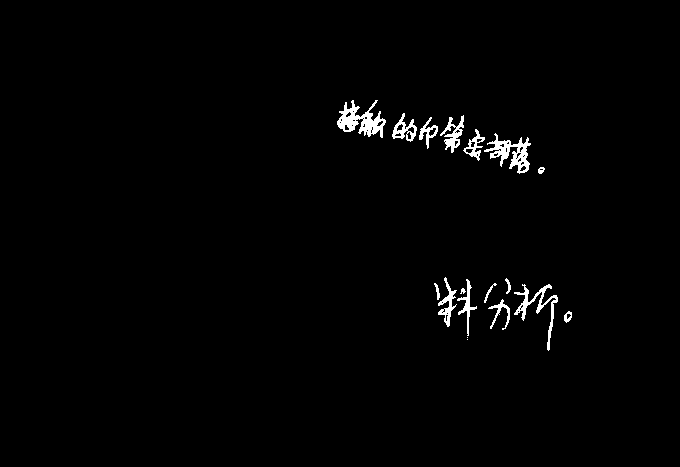 接触的印第安部落。
料分析。